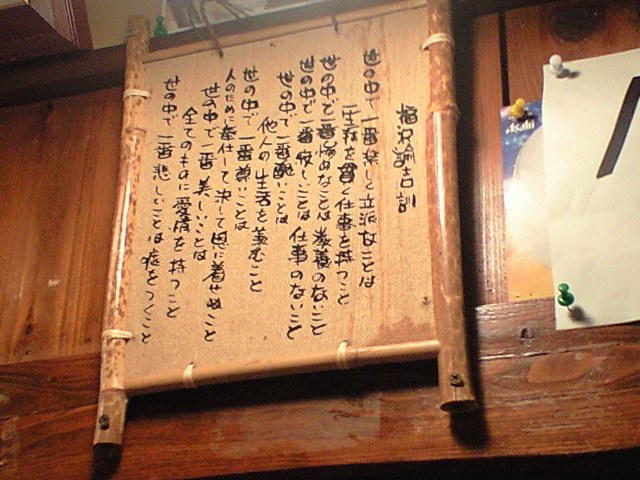 福沢諭吉訓
世の中で一番楽しく立派なことは
一生涯を貫く仕事を持つこと
世の中で一番惨めなことは教養のないこと
世の中で一番寂しいことは仕事のないこと
世の中で一番醜いことは
他人の生活を羨むこと
世の中で一番尊いことは
人のために奉仕して決して恩に着せぬこと
世の中で一番美しいことは
全てのものに愛情を持つこと
世の中で一番悲しいことは嘘をつくこと
Asahi